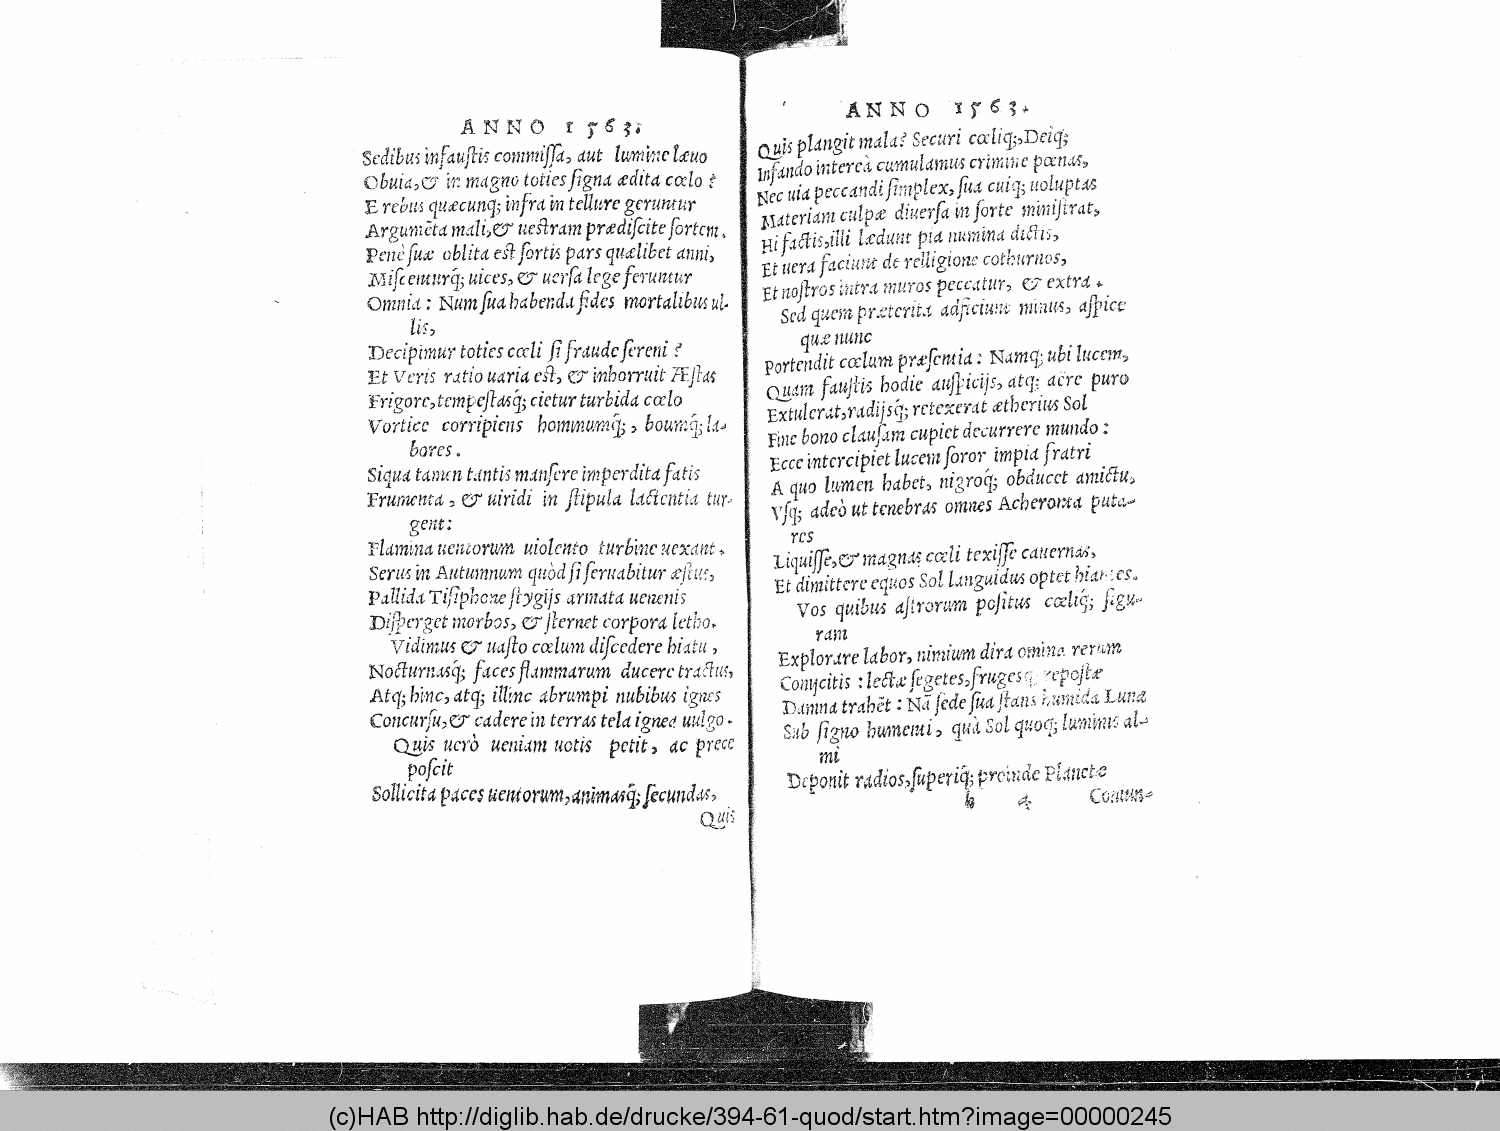 ANNO 1563.
Sedibus infauſtis commiſſa, aut lumine læuo
Obuia, & in magno toties ſigna ædita cœlo ?
E rebus quæcunq; infra in tellure geruntur
Argumẽta mali, & ueſtram prædiſcite ſortem.
Penè ſuæ oblita eſt ſortis pars quælibet anni,
Miſcenturq́; uices, & uerſa lege feruntur
Omnia : Num ſua habenda fides mortalibus ul-
lis,
Decipimur toties cœli ſi fraude ſereni ?
Et Veris ratio uaria eſt, & inhorruit Æſtas
Frigore, tempeſtasq́; cietur turbida cœlo
Vortice corripiens hominumq́;, boumq́; la-
bores.
Siqua tamen tantis manſere imperdita fatis
Frumenta, & uiridi in ſtipula lactentia tur-
gent:
Flamina uentorum uiolento turbine uexant.
Serus in Autumnum quòd ſi ſeruabitur æſtus,
Pallida Tiſiphone ſtygijs armata uenenis
Diſperget morbos, & ſternet corpora letho.
Vidimus & uaſto cœlum diſcedere hiatu,
Nocturnasq́; faces flammarum ducere tractus,
Atq; hinc, atq; illinc abrumpi nubibus ignes
Concurſu, & cadere in terras tela ignea uulgo.
Quis uerò ueniam uotis petit, ac prece
poſcit
Sollicita paces uentorum, animasq́; ſecundas,
Quis
ANNO 1563.
Quis plangit mala? Securi cœliq;, Deiq;
Infando intereà cumulamus crimine pœnas,
Nec uia peccandi ſimplex, ſua cuiq; uoluptas
Materiam culpæ diuerſa in ſorte miniſtrat,
Hi factis, illi lædunt pia numina dictis,
Et uera faciunt de relligione cothurnos,
Et noſtros intra muros peccatur, & extra.
Sed quem præterita adficiunt minus, aſpice
quæ nunc
Portendit cœlum præſentia : Namq; ubi lucem,
Quam fauſtis hodie auſpicijs, atq; aëre puro
Extulerat, radijsq́; retexerat ætherius Sol
Fine bono clauſam cupiet decurrere mundo :
Ecce intercipiet lucem ſoror impia fratri
A quo lumen habet, nigroq́; obducet amictu,
Vſq; adeò ut tenebras omnes Acheronta puta-
res
Liquiſſe, & magnas cœli texiſſe cauernas,
Et dimittere equos Sol languidus optet hiantes.
Vos quibus aſtrorum poſitus cœliq́; figu-
ram
Explorare labor, nimium dira omina rerum
Conijcitis : lectæ ſegetes, fruges repoſtæ
Damna trahẽt : Nã ſede ſua ſtans humida Luna
Sub ſigno humenti, quà Sol quoq; luminis al-
mi
Deponit radios, ſuperiq́; proinde Planetæ
h 4 Conun-
(c)HAB http://diglib.hab.de/drucke/394-61-quod/start.htm?image=00000245